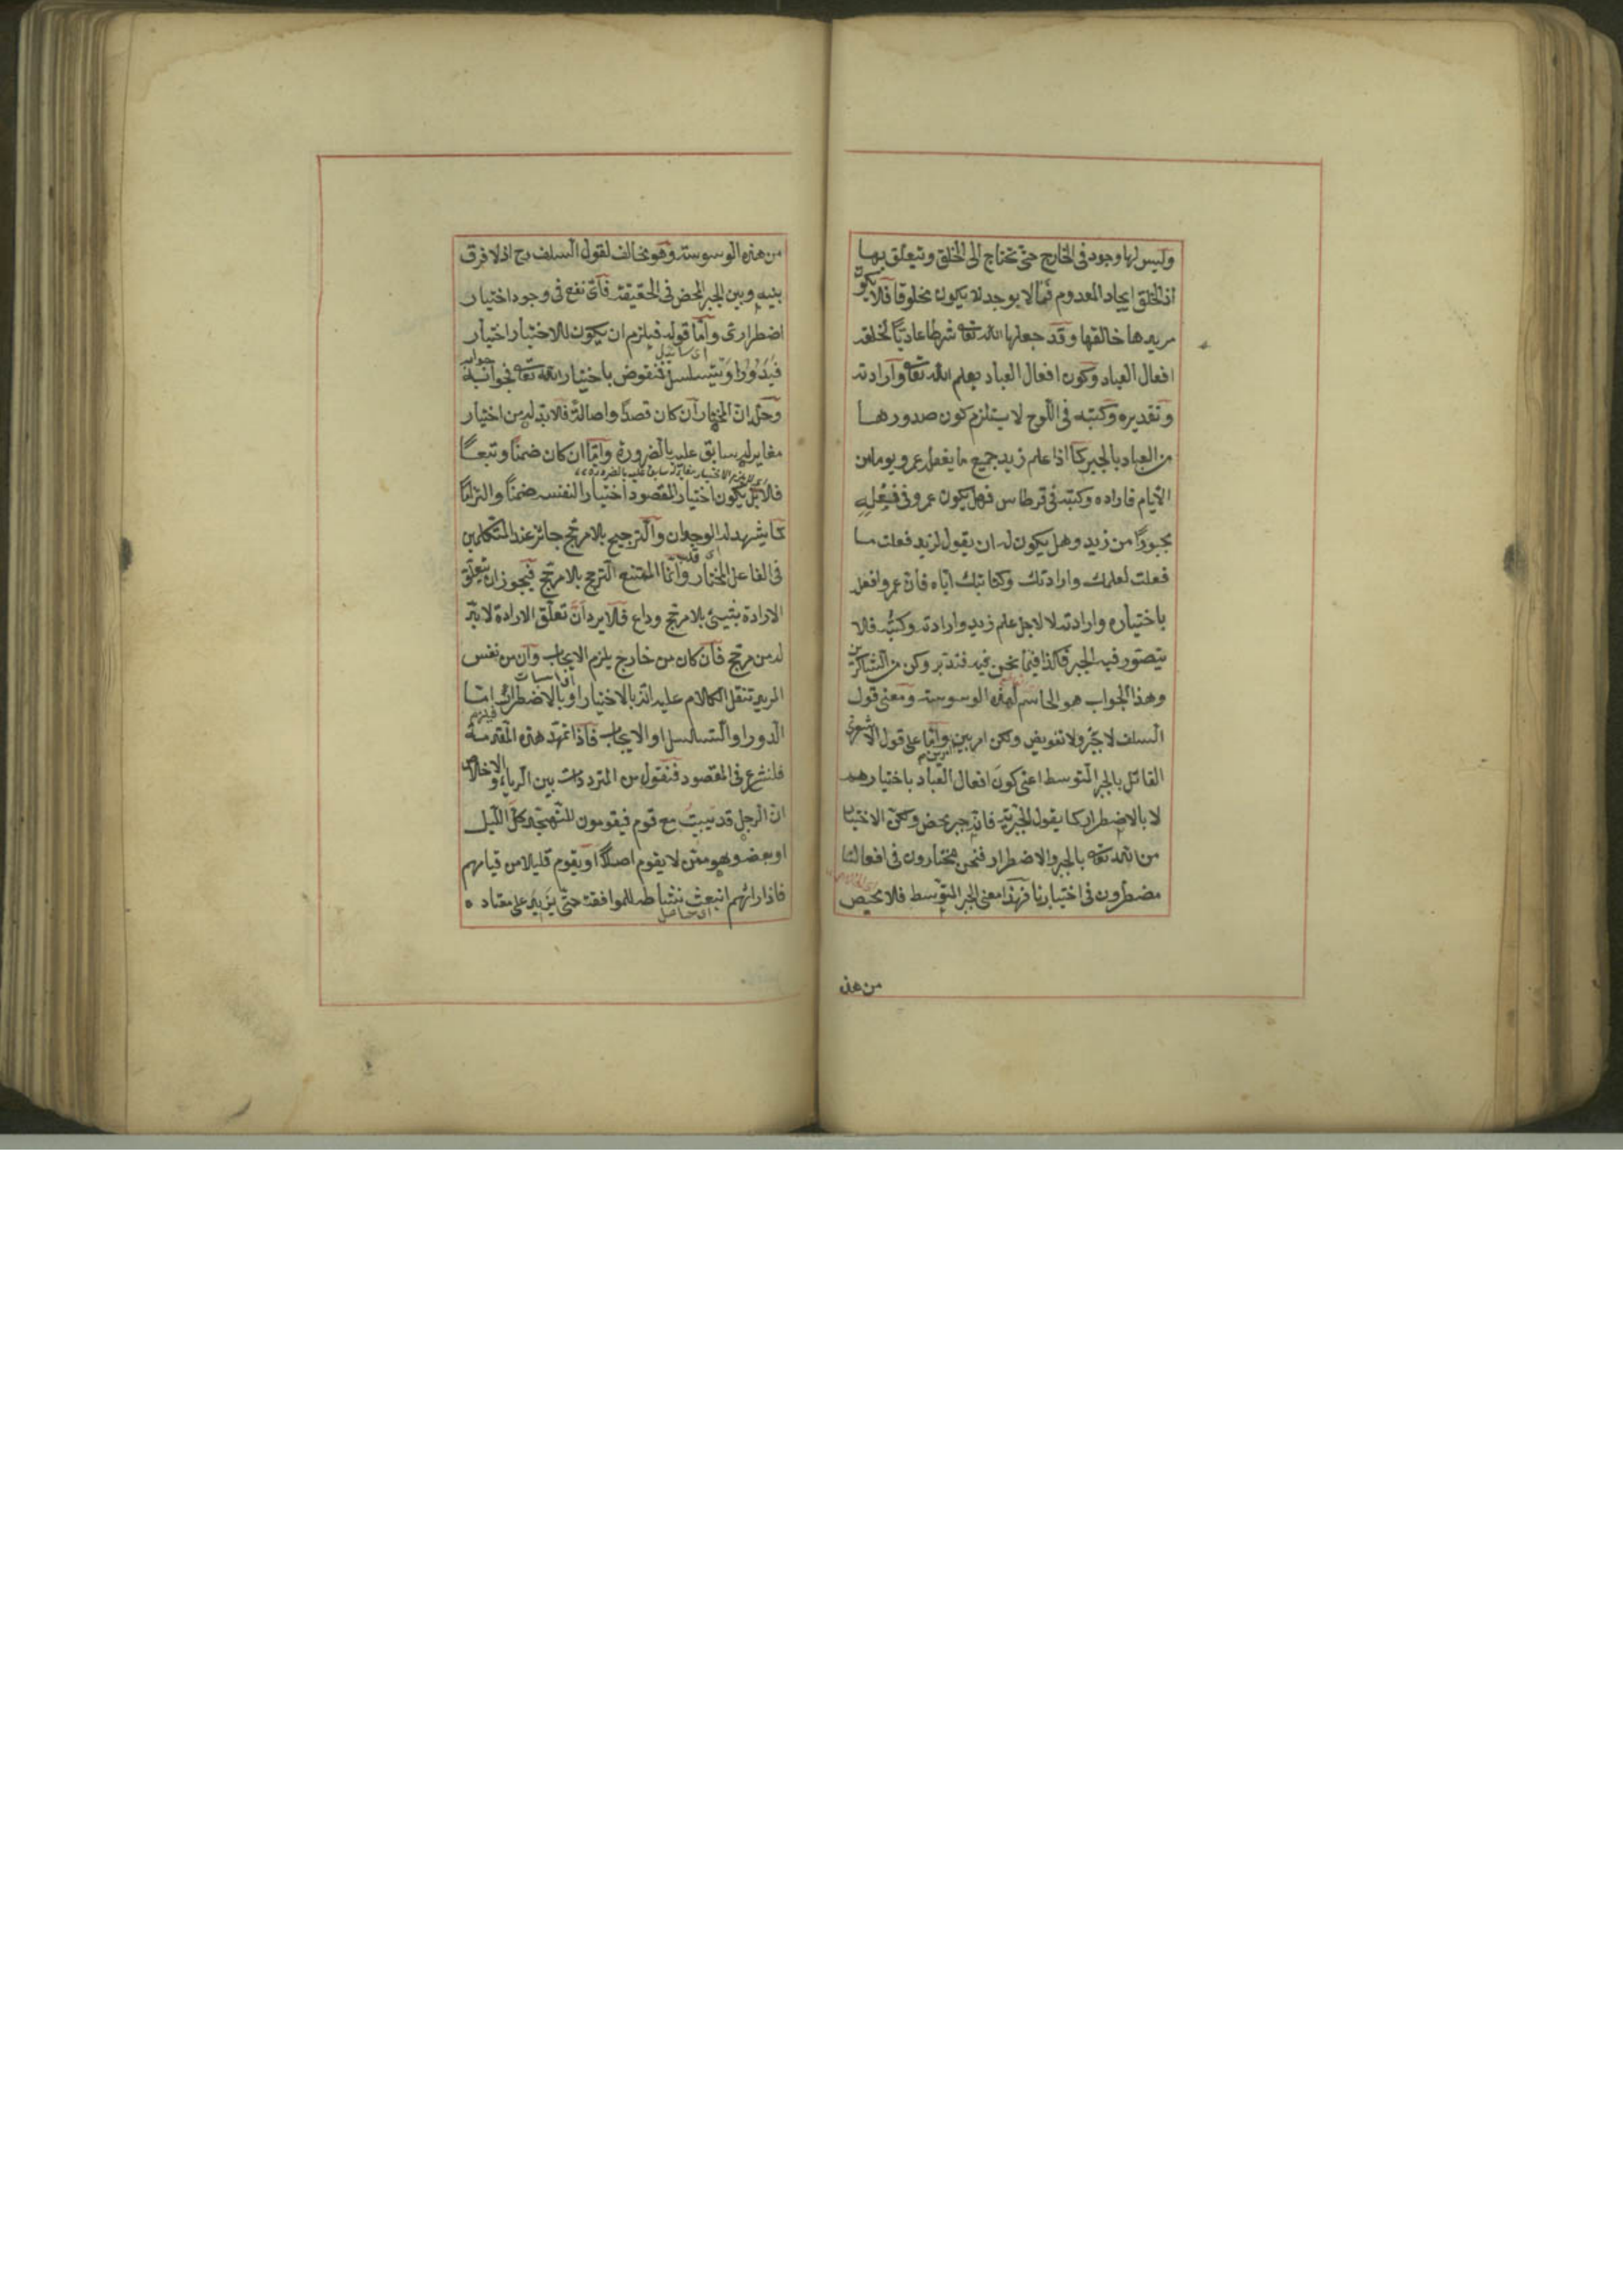 وليس لها وجود في الخارج حتى تحتاج الى الخلق وتتعلق بها
اذ الخلق ايجاد المعدوم فما لا يوجد لا يكون مخلوقا فلا يكون
مريدها خالقها وقد جعلها الله تعا شرطا عاديا لخلقه
افعال العباد وكون افعال العباد بعلم الله تعا وارادته
وتقديره وكتبه في اللوح لا يستلزم كون صدورها
من العباد بالجبر كما اذا علم زيد جميع ما يفعل عمرو يوما من
الايام فاراده وكتبه في قرطاس فهل يكون عمرو في فعله
مجبورا من زيد وهل يكون له ان يقول لزيد فعلت ما
فعلت لعلمك وارادتك وكتابتك اياه فان عمروا فعل
باختياره وارادته لا لاجل علم زيد وارادته وكتبه فلا
يتصور فيه الجبر فكذا فيما نحن فيه فتدبر وكن من الشاكرين
وهذا الجواب هو الحاسم لهذه الوسوسة ومعنى قول
السلف لا جبر ولا تفويض ولكن امر بين امرين واما على قول الاشعرى
القائل بالجبر المتوسط اعنى كون افعال العباد باختيارهم
لا بالاضطرار كما يقول الجبرية فانه جبر محض ولكن الاختيار
من الله تعا بالجبر والاضطرار فنحن مختارون في افعالنا
مضطرون في اختيارنا فهذا معنى الجبر المتوسط فلا محيص
من هذه
من هذه الوسوسة وهو مخالف لقول السلف رح اذ لا فرق
بينه وبين الجبر المحض في الحقيقة فاى نفع في وجود اختيار
اضطرارى واما قوله فيلزم ان يكون للاختيار اختيار
فيدور او يتسلسل فنقوض باختيار الله تعا فجوابنا جوابه
وحله ان المختار ان كان قصدا واصالة فلا بد له من اختيار
مغاير له سابق عليه بالضرورة واما ان كان ضمنا وتبعا
فلا بل يكون اختيار المقصود اختيارا لنفسه ضمنا والتزاما
كما يشهد له الوجدان والترجيح بلا مرجح جائز عند المتكلمين
في الفاعل المختار وانما الممتنع الترجح بلا مرجح فيجوز ان يتعلق
الارادة بشيئ بلا مرجح وداع فلا يرد ان تعلق الارادة لا بد
له من مرجح فان كان من خارج يلزم الايجاب وان من نفس
المريد تنقل الكلام عليه انه بالاختيار او بالاضطرار فيلزم اما
الدور او التسلسل او الايجاب فاذا تمهد هذه المقدمة
فلنشرع في المقصود فنقول من المترددات بين الرياء والاخلاص
ان الرجل قد يبيت مع قوم فيقومون للتهجد كل الليل
او بعضه وهو ممن لا يقوم اصلا او يقوم قليلا من قيامهم
فاذا رأهم انبعث نشاطه للموافقة حتى يزيد على معتاده